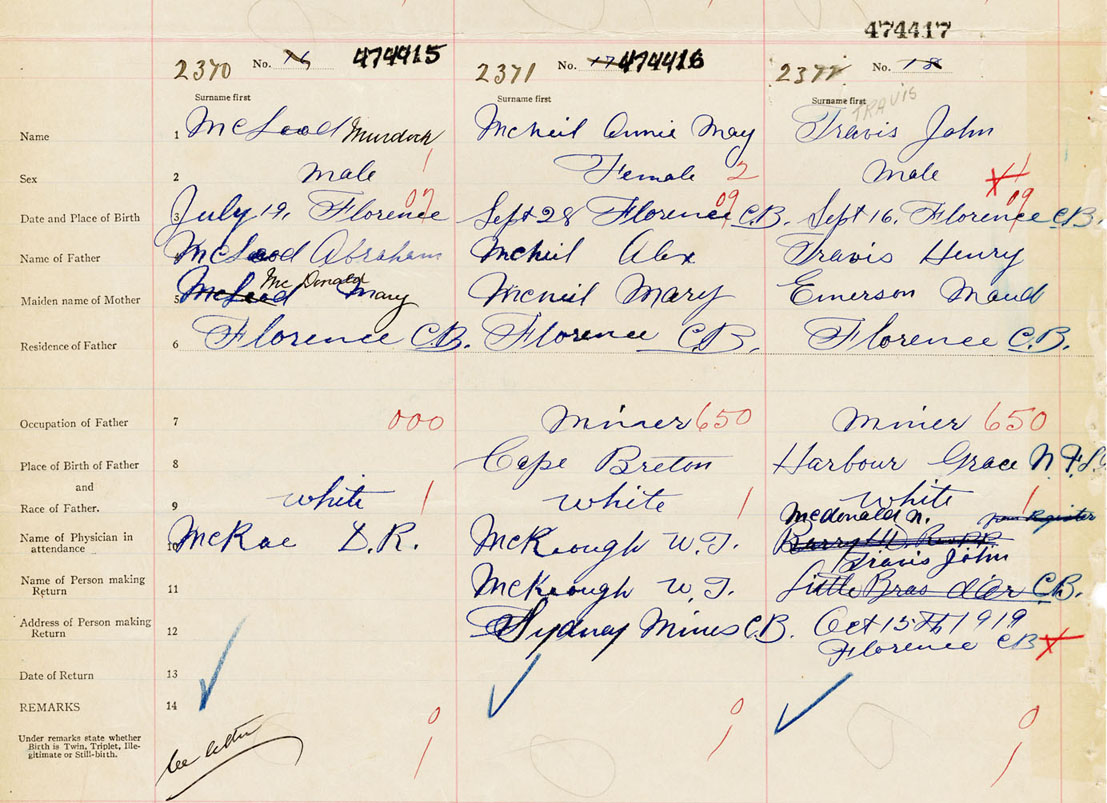 474417
2370 No. 16 474415 2371 No. 17 474416 2372 No. 18
Surname first Surname first Surname first TRAVIS
Name 1 McLeod Murdock McNeil Annie May Travis John
Sex 2 male 1 Female 2 Male X 1
Date and Place of Birth 3 July 19, Florence 09 Sept 28 Florence C.B. 09 Sept 16, Florence C.B. 09
Name of Father 4 McLeod Abraham McNeil Alex Travis Henry
Maiden name of Mother 5 McLeod McDonald Mary McNeil Mary Emerson Maud
Residence of Father 6 Florence C.B. Florence C.B. Florence C.B.
Occupation of Father 7 000 Miner 650 Miner 650
Place of Birth of Father 8 Cape Breton Harbour Grace N.F.L.
and
Race of Father. 9 white 1 white 1 white 1
Name of Physician in 10 McRae D.R. McKeough W.T. McDonald N. Register
attendance
Travis John
Name of Person making 11 McKeough W.T. Little Bras d'Or C.B.
Return
Address of Person making 12 Sydney Mines C.B. Oct 15th 1919
Return
Florence CB X
Date of Return 13
REMARKS 14 0 0 0
Under remarks state whether
Birth is Twin, Triplet, Ille-
gitimate or Still-birth.
see letter 1 1 1